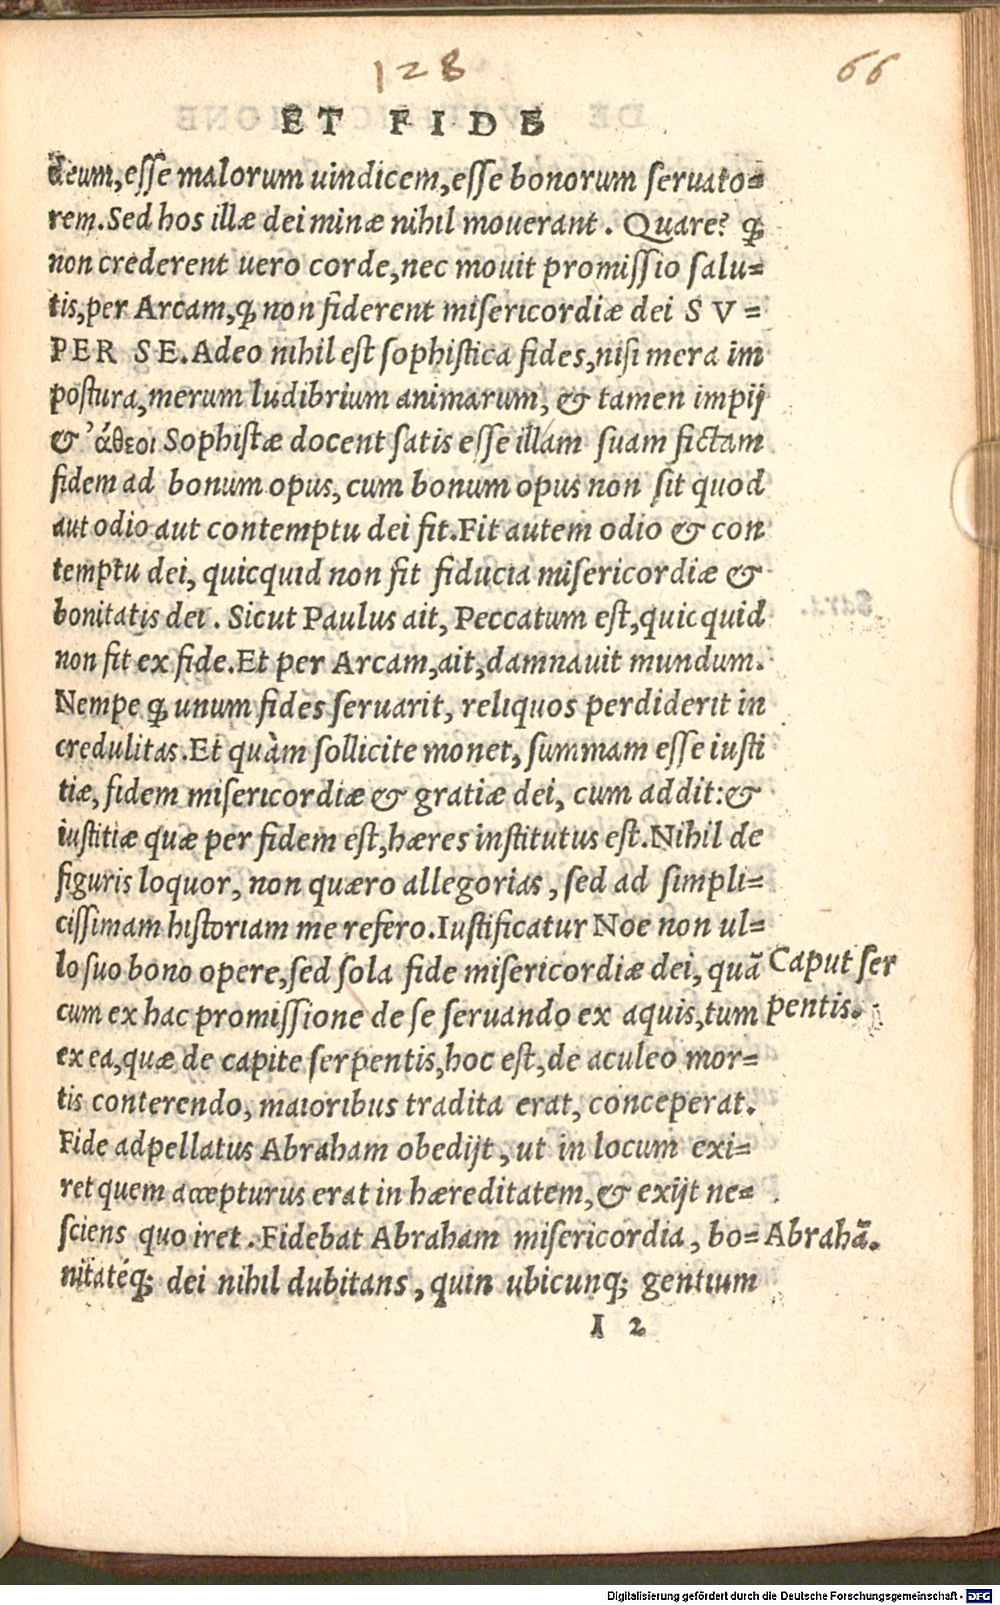 128
66
ET FIDE
deum, esse malorum uindicem, esse bonorum seruato=
rem. Sed hos illæ dei minæ nihil mouerant. Quare? ꝙ
non crederent uero corde, nec mouit promissio salu=
tis, per Arcam, ꝙ non fiderent misericordiæ dei S V=
PER SE. Adeo nihil est sophistica fides, nisi mera im
postura, merum ludibrium animarum, & tamen impij
& ἄθεοι Sophistæ docent satis esse illam suam fictam
fidem ad bonum opus, cum bonum opus non sit quod
aut odio aut contemptu dei fit. Fit autem odio & con
temptu dei, quicquid non fit fiducia misericordiæ &
bonitatis dei. Sicut Paulus ait, Peccatum est, quicquid
non fit ex fide. Et per Arcam, ait, damnauit mundum.
Nempe ꝙ unum fides seruarit, reliquos perdiderit in
credulitas. Et quàm sollicite monet, summam esse iusti
tiæ, fidem misericordiæ & gratiæ dei, cum addit: &
iustitiæ quæ per fidem est, hæres institutus est. Nihil de
figuris loquor, non quæro allegorias, sed ad simpli=
cissimam historiam me refero. Iustificatur Noe non ul=
lo suo bono opere, sed sola fide misericordiæ dei, quã
Caput ser
cum ex hac promissione de se seruando ex aquis, tum
pentis.
ex ea, quæ de capite serpentis, hoc est, de aculeo mor=
tis conterendo, maioribus tradita erat, conceperat.
Fide adpellatus Abraham obedijt, ut in locum exi=
ret quem accepturus erat in hæreditatem, & exijt ne=
sciens quo iret. Fidebat Abraham misericordia, bo=
Abrahã.
nitatéq; dei nihil dubitans, quin ubicunq; gentium
I 2
Digitalisierung gefördert durch die Deutsche Forschungsgemeinschaft - DFG